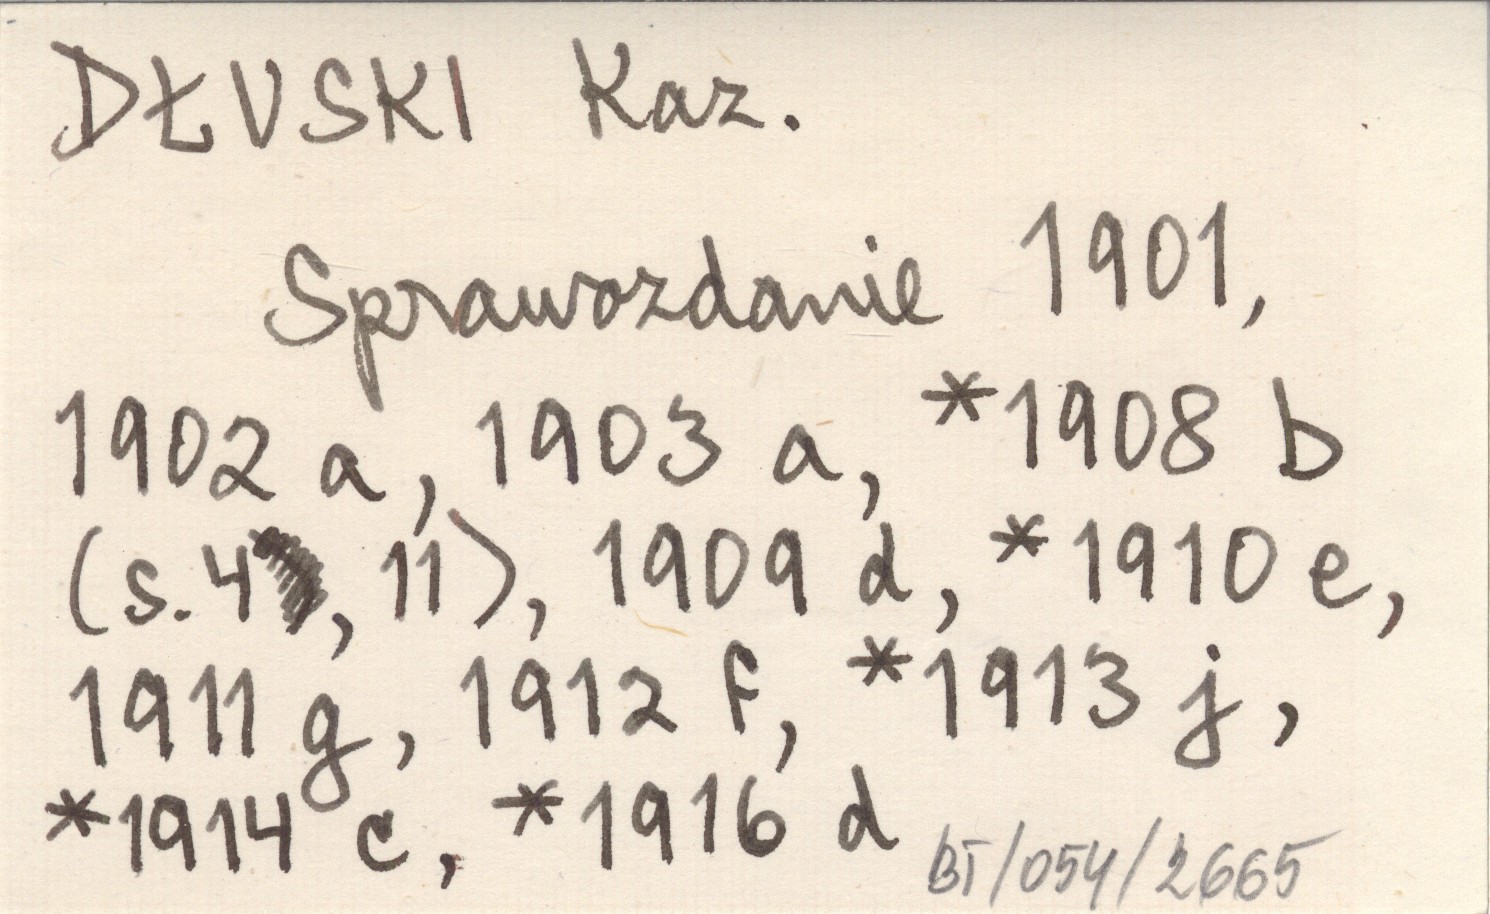 DŁUSKI Kaz.
Sprawozdanie 1901,
1902 a, 1903 a, *1908 b
(s. 4, 11), 1909 d, *1910 e,
1911 g, 1912 f, *1913 j,
*1914 c, *1916 d
BT/054/2665